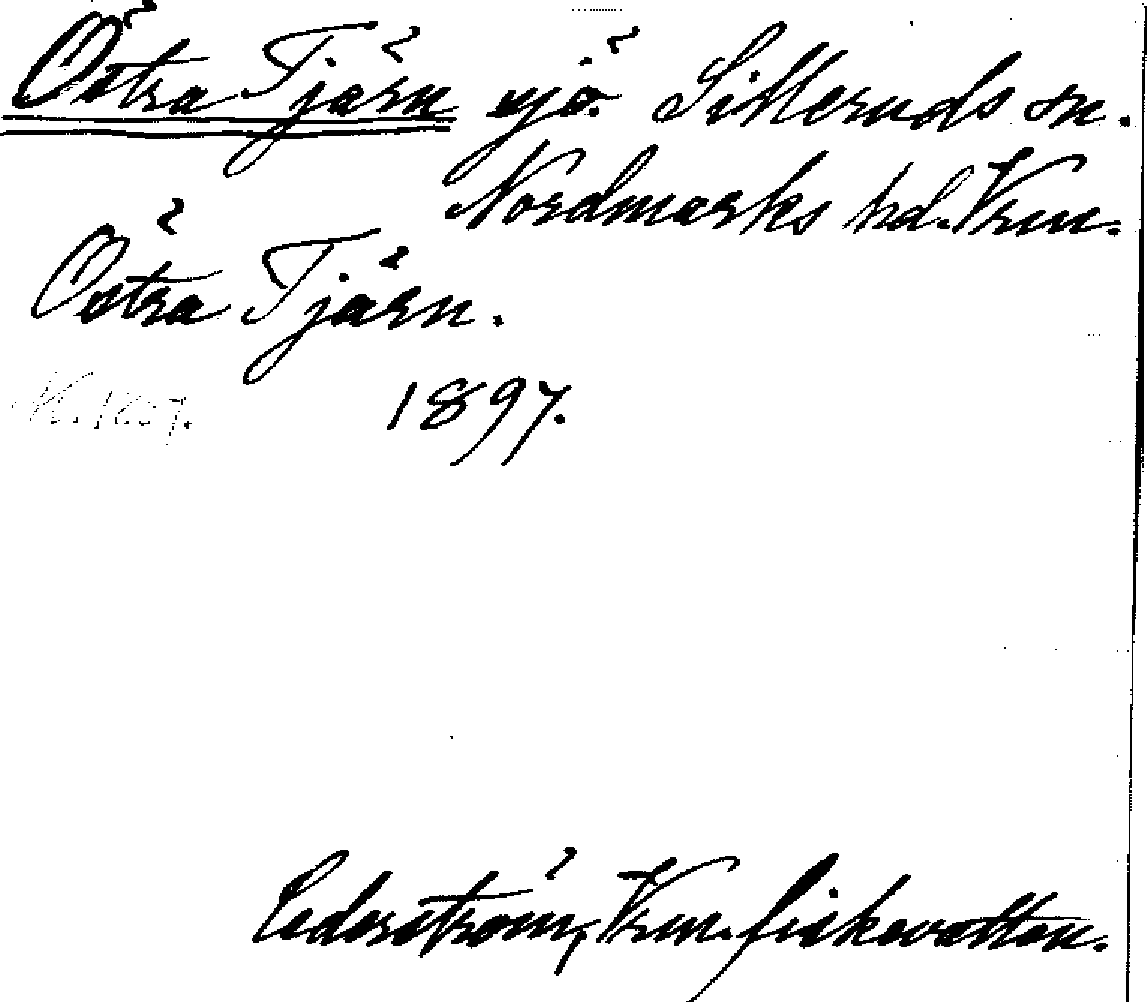 Östra Tjärn sjö. Silleruds sn.
Nordmarks hd. Vrm.
Östra Tjärn.
1897.
Cederström, Vrm. fiskevatten.